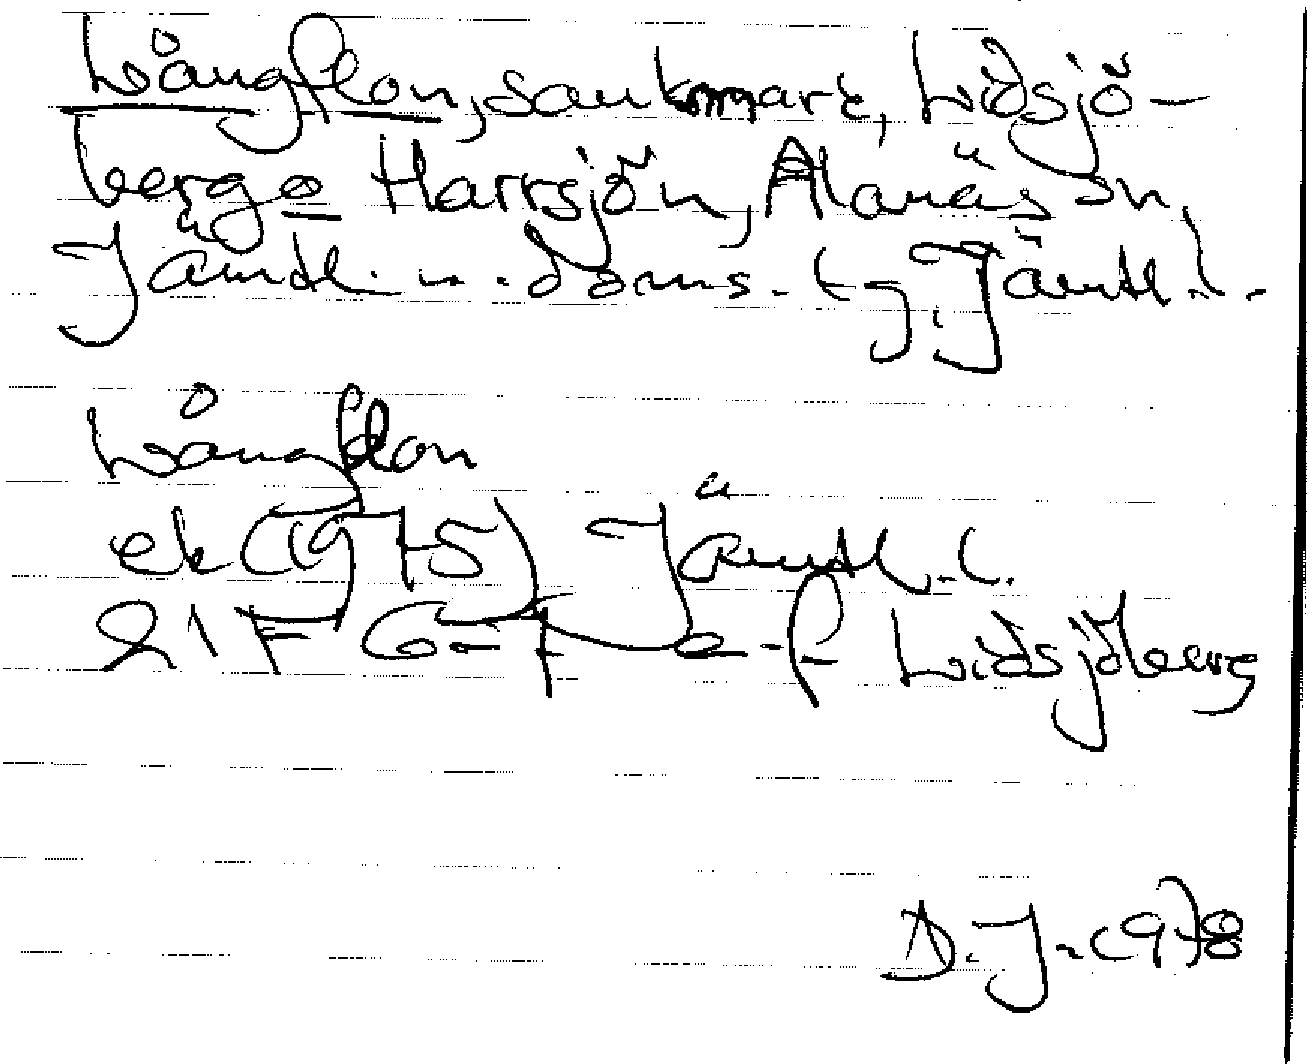 Långflon, sankmark, Lidsjö-
berg o Harrsjön, Alanäs sn,
Jämtl. n. doms. tg, Jämtl. l.
Långflon
ek (1975) Jämtl. l.
21F 6-7 e-f Lidsjöberg
D.J. 1978